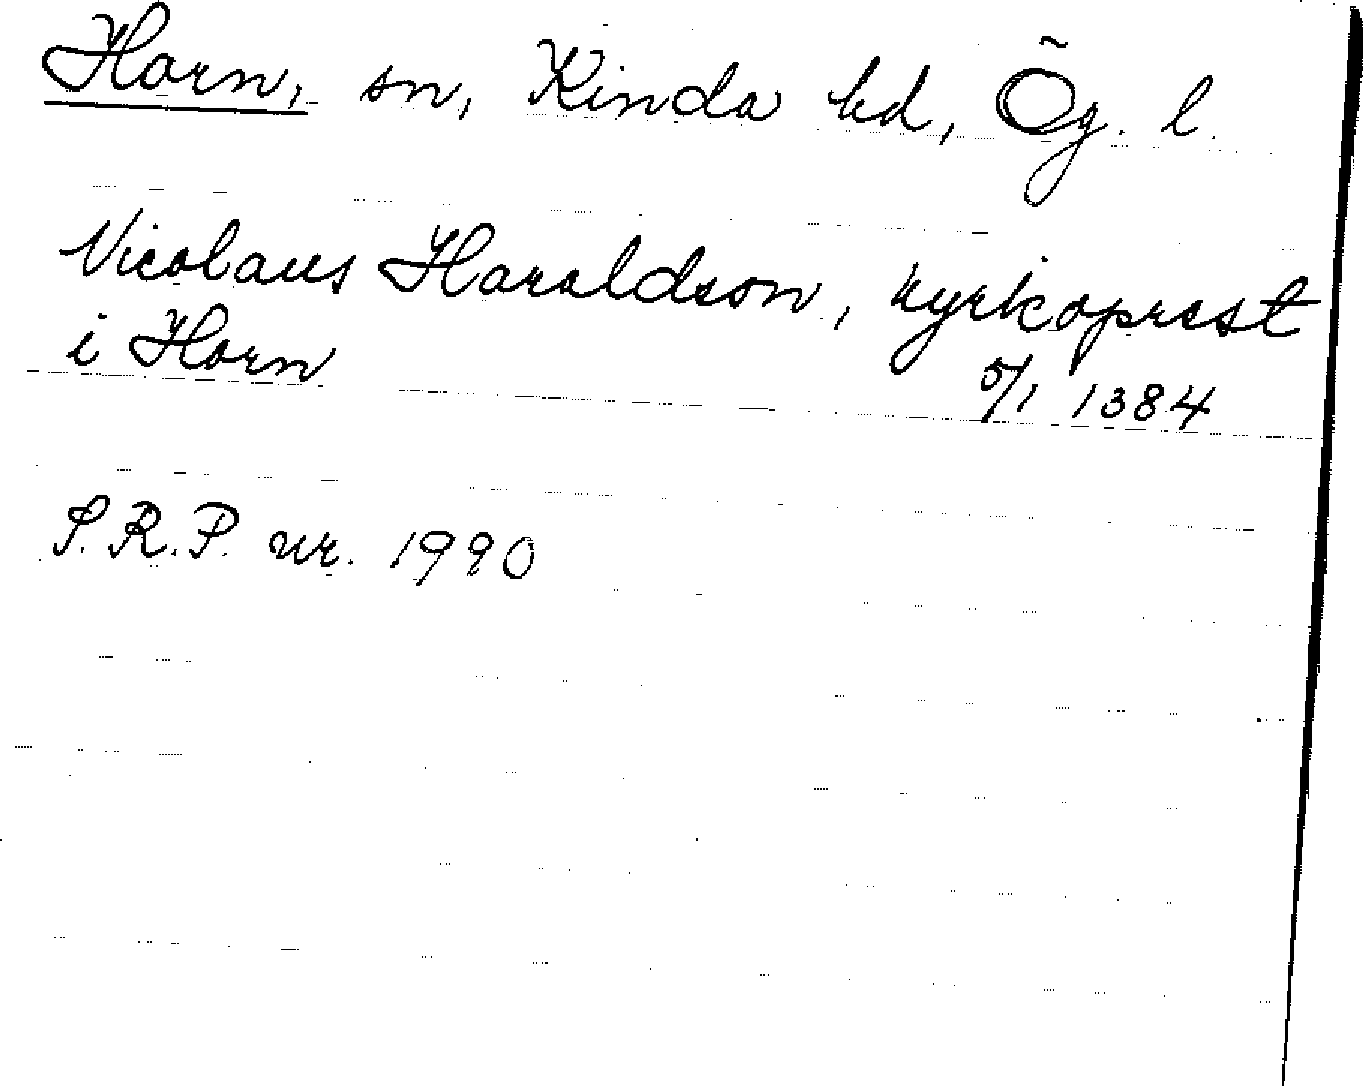 Horn, sn, Kinda hd, Õg. l.
Nicolaus Haraldson, kyrkoprest
i Horn
5/1 1384
S.R.P. nr. 1990